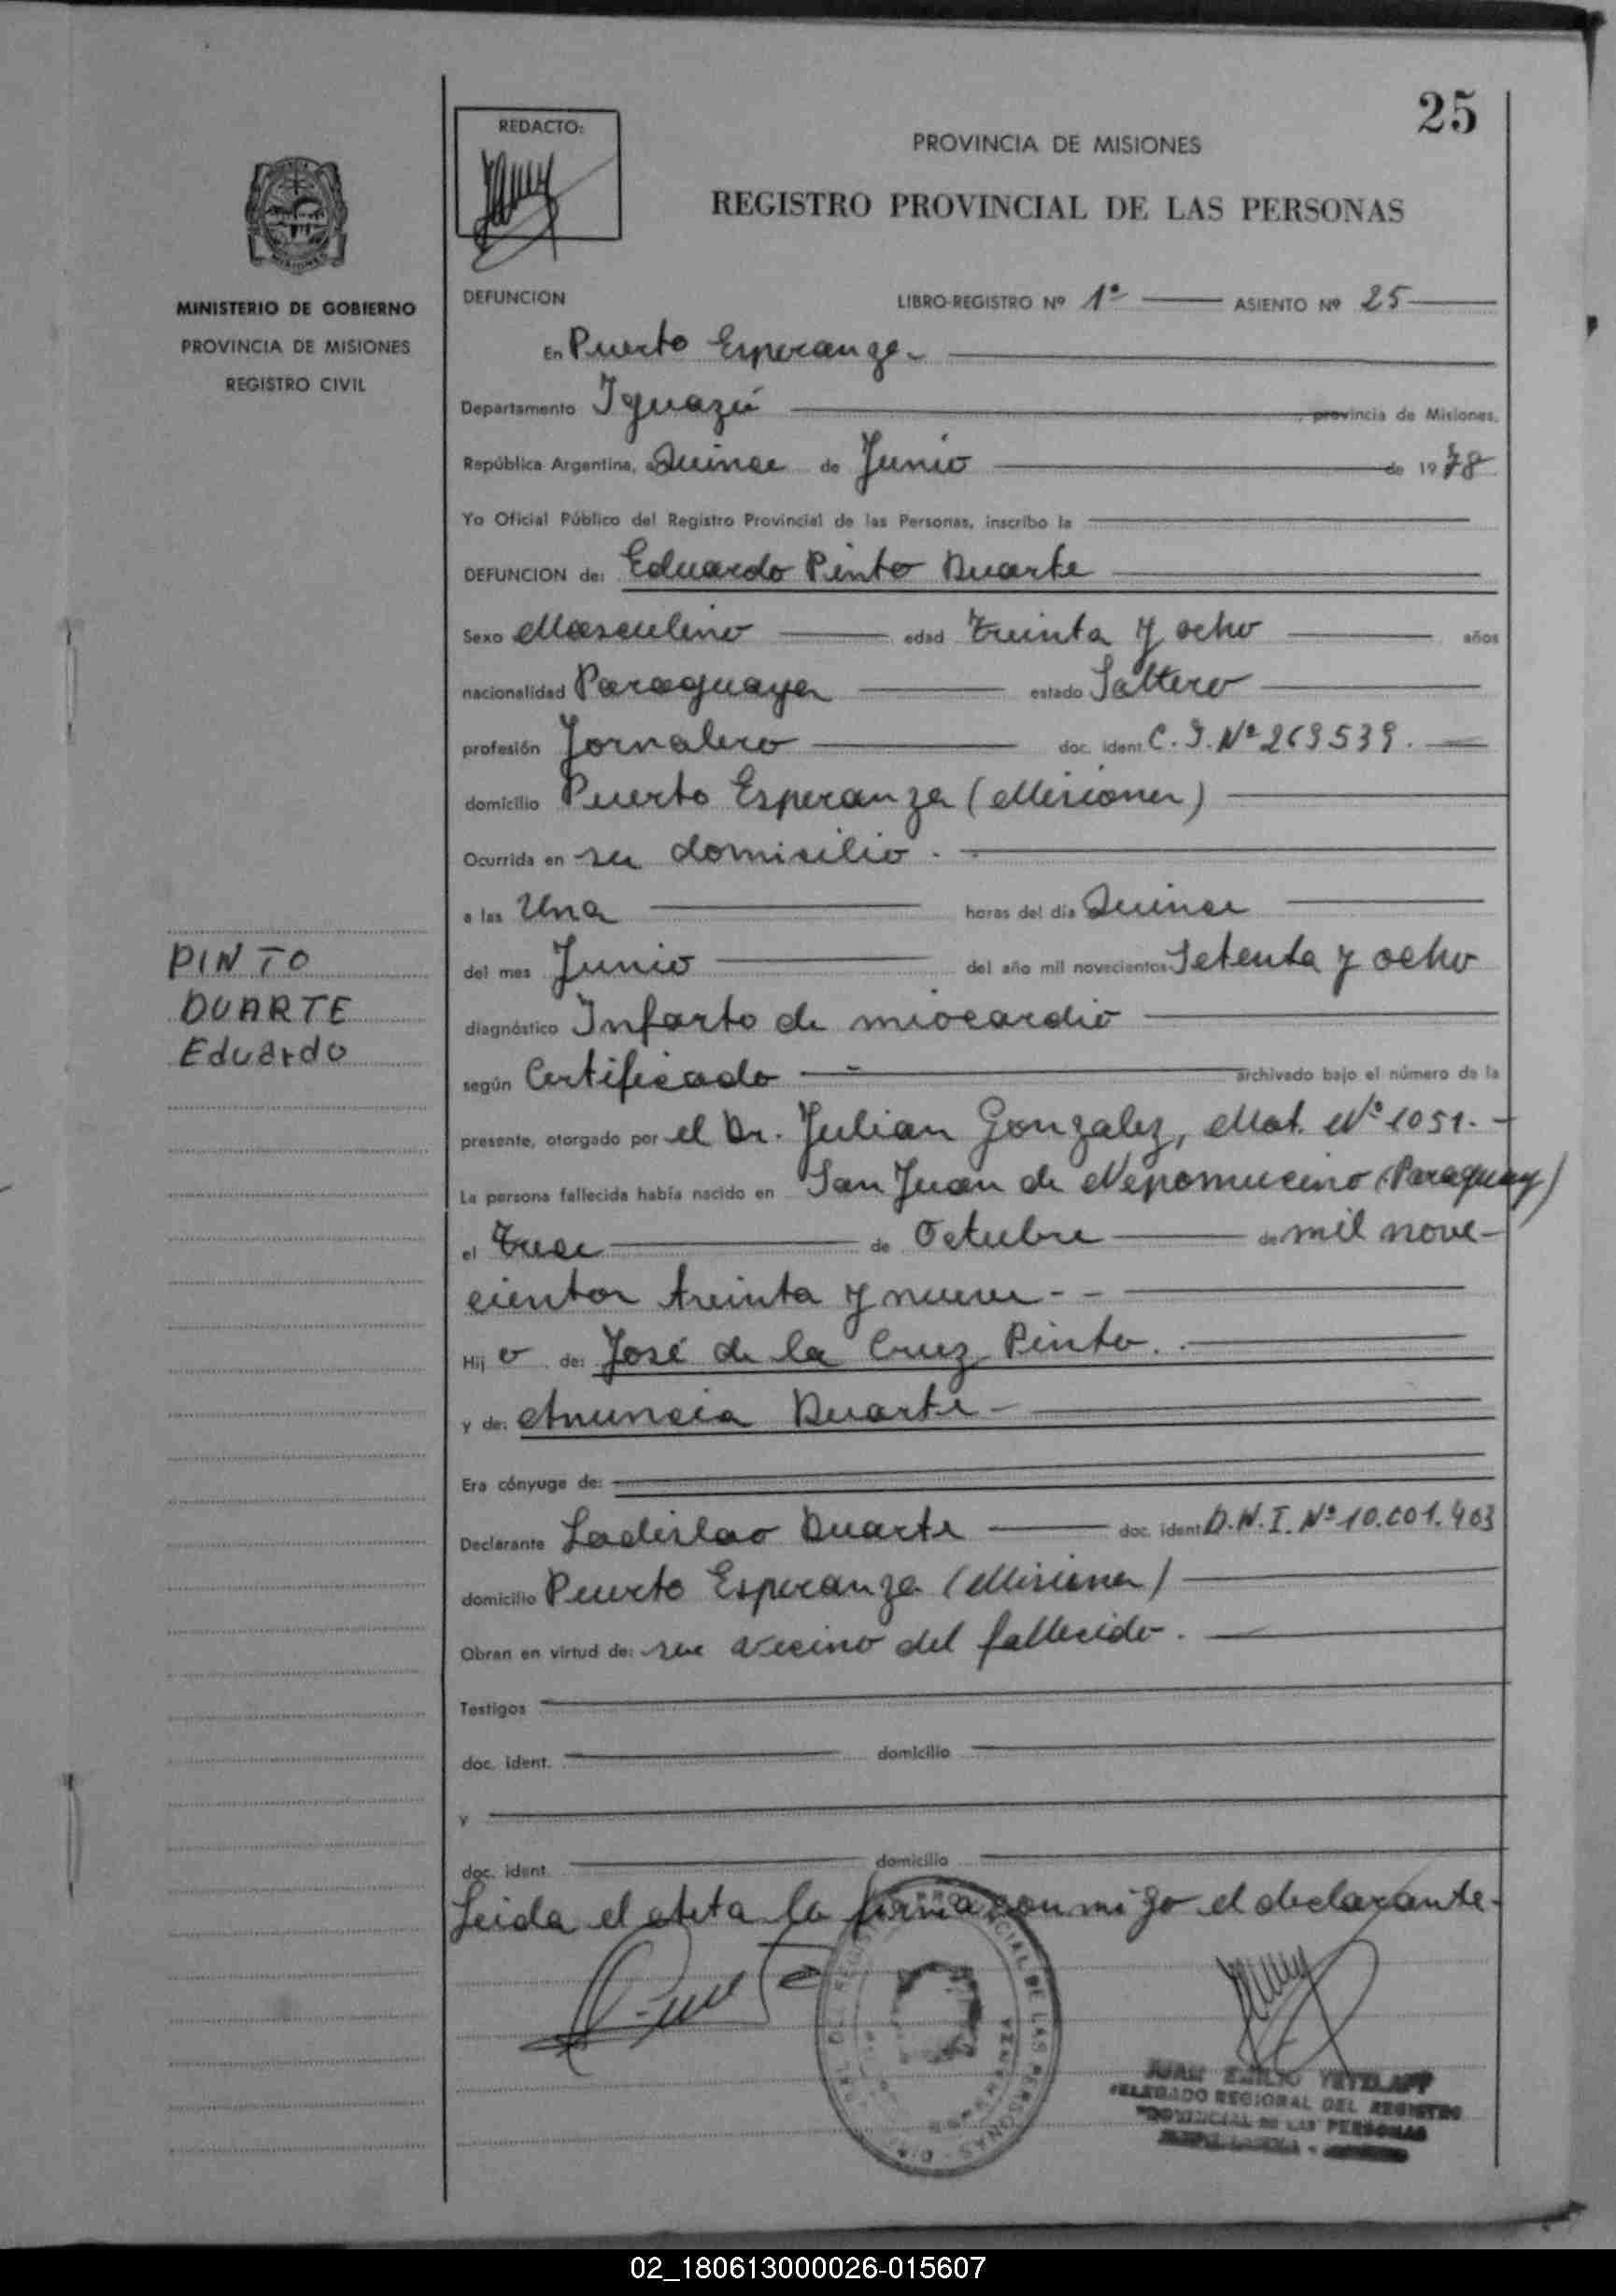 25
REDACTO:
PROVINCIA DE MISIONES
REGISTRO PROVINCIAL DE LAS PERSONAS
MISIONES
MINISTERIO DE GOBIERNO
PROVINCIA DE MISIONES
REGISTRO CIVIL
DEFUNCION LIBRO-REGISTRO Nº 1º ASIENTO Nº 25
En Puerto Esperanza
Departamento Iguazú, provincia de Misiones.
República Argentina, a Quince de Junio de 1978
Yo Oficial Público del Registro Provincial de las Personas, inscribo la
DEFUNCION de: Eduardo Pinto Duarte
Sexo Masculino edad Treinta y ocho años
nacionalidad Paraguaya estado Soltero
profesión Jornalero doc. ident. C.I. Nº 269539.
domicilio Puerto Esperanza (Misiones)
Ocurrida en su domicilio.
a las Una horas del día Quince
del mes Junio del año mil novecientos Setenta y ocho
diagnóstico Infarto de miocardio
según Certificado archivado bajo el número de la
presente, otorgado por el Dr. Julian Gonzalez, Mat. Nº 1051.-
La persona fallecida había nacido en San Juan de Nepomuceno (Paraguay)
el Trece de Octubre de mil nove-
cientos treinta y nueve - -
Hijo de: José de la Cruz Pinto.
y de: Anuncia Duarte -
Era cónyuge de:
Declarante Ladislao Duarte doc. ident. D.N.I. Nº 10.001.403
domicilio Puerto Esperanza (Misiones)
Obran en virtud de: ser vecino del fallecido.
Testigos
doc. ident. domicilio
y
doc. ident. domicilio
Leida el acta la firma conmigo el declarante.
PINTO
DUARTE
Eduardo
PROVINCIAL DE LAS PERSONAS
JUAN EMILIO
DELEGADO REGIONAL DEL REGISTRO
PROVINCIAL DE LAS PERSONAS
02_180613000026-015607